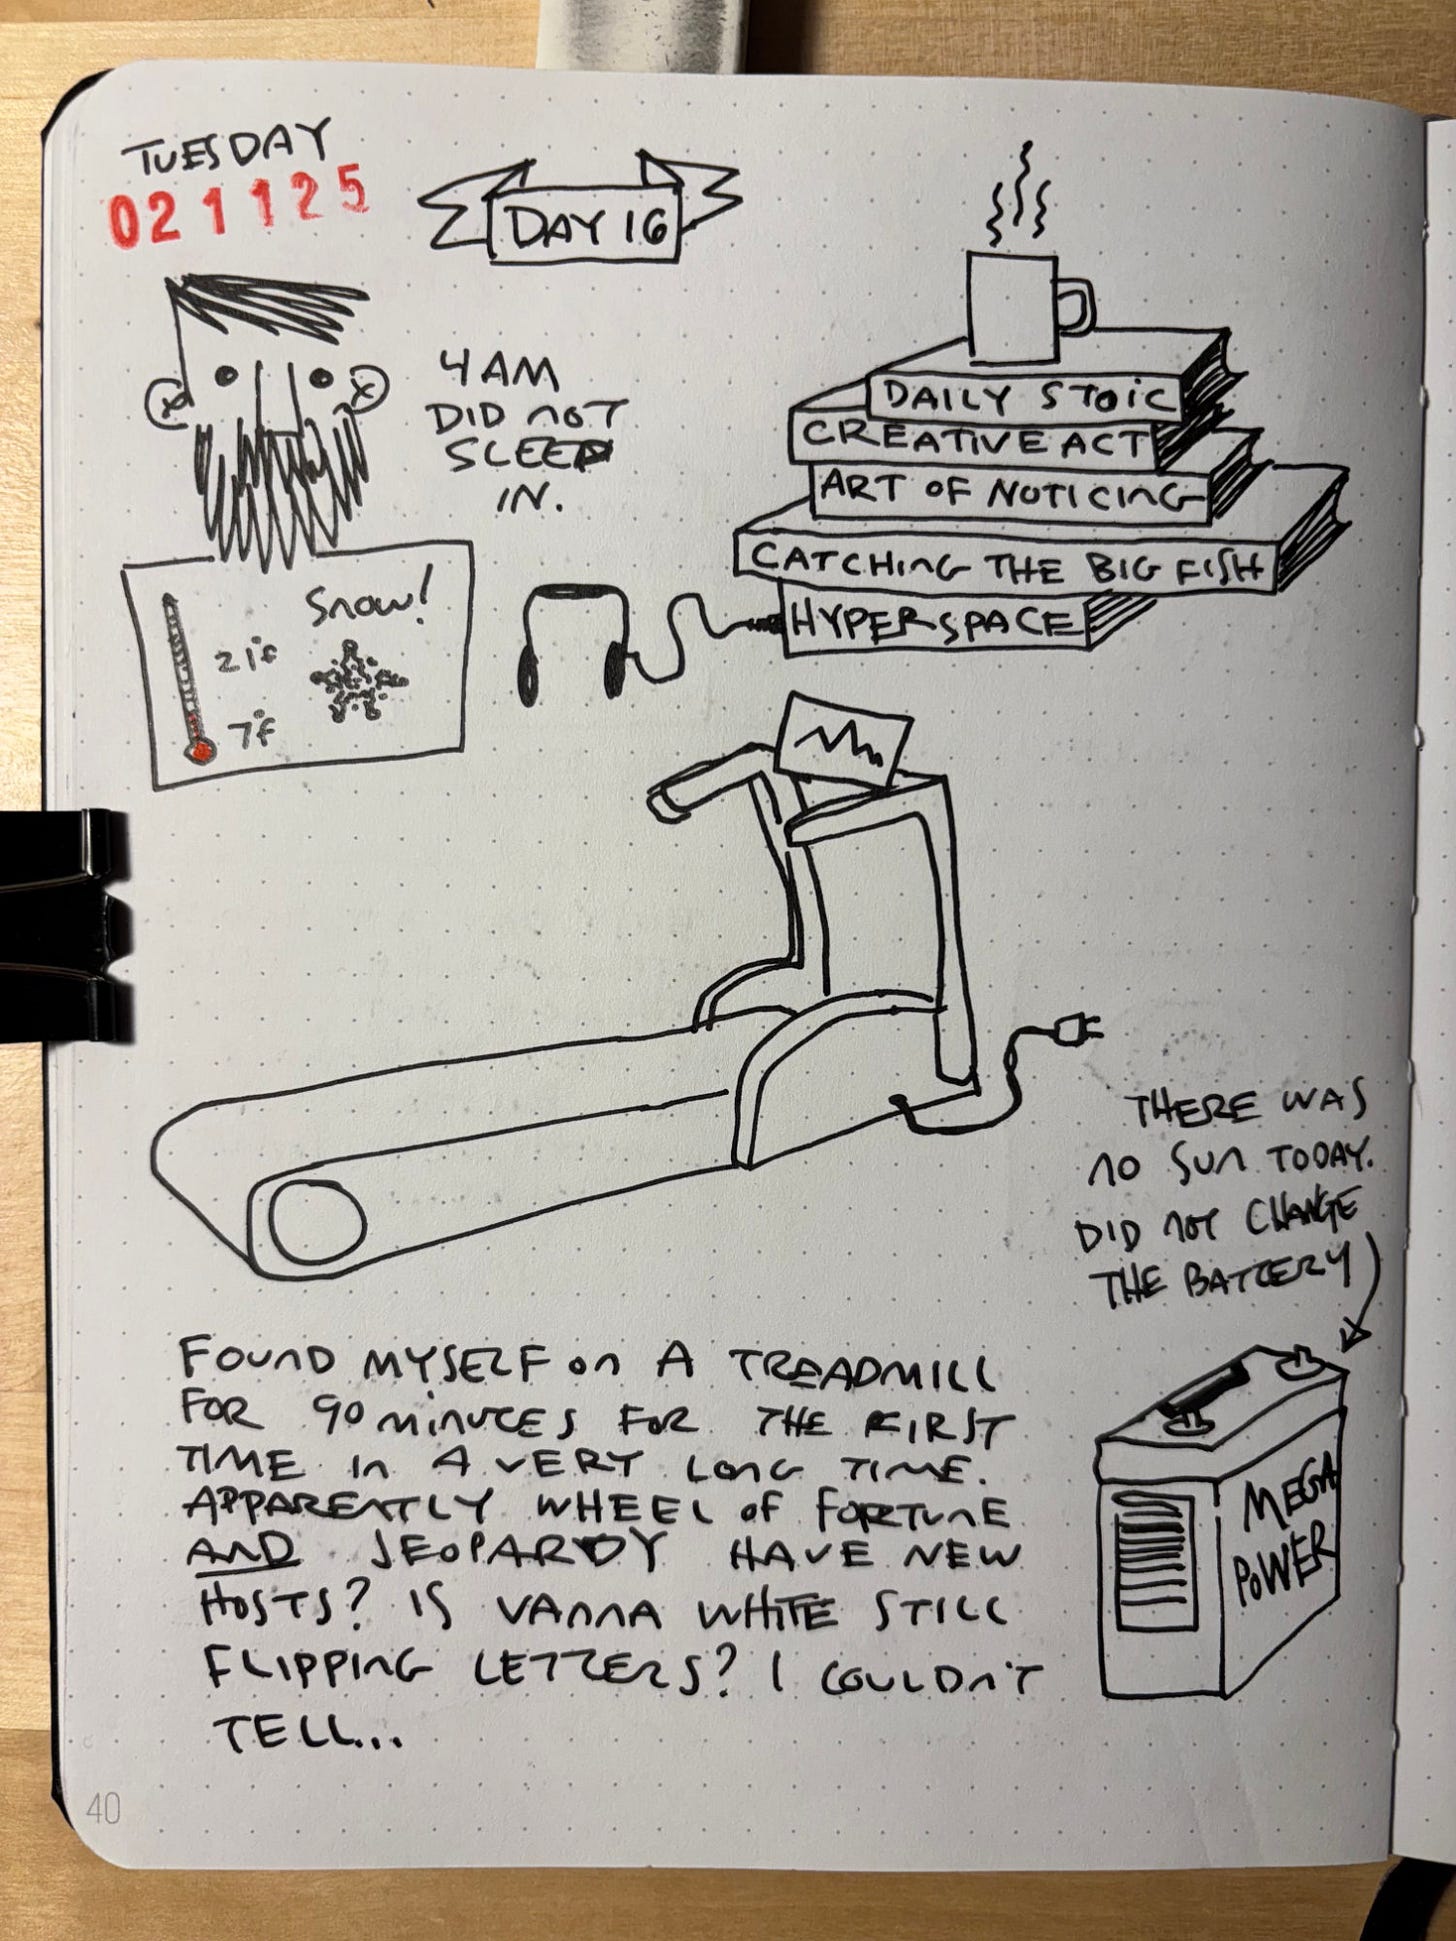 TUESDAY
021125
DAY 16
4 AM
DID NOT
SLEEP
IN.
Snow!
21°F
7°F
DAILY STOIC
CREATIVE ACT
ART OF NOTICING
CATCHING THE BIG FISH
HYPERSPACE
THERE WAS
NO SUN TODAY.
DID NOT CHANGE
THE BATTERY
MEGA
POWER
FOUND MYSELF ON A TREADMILL
FOR 90 MINUTES FOR THE FIRST
TIME IN A VERY LONG TIME.
APPARENTLY WHEEL OF FORTUNE
AND JEOPARDY HAVE NEW
HOSTS? IS VANNA WHITE STILL
FLIPPING LETTERS? I COULDN'T
TELL...
40